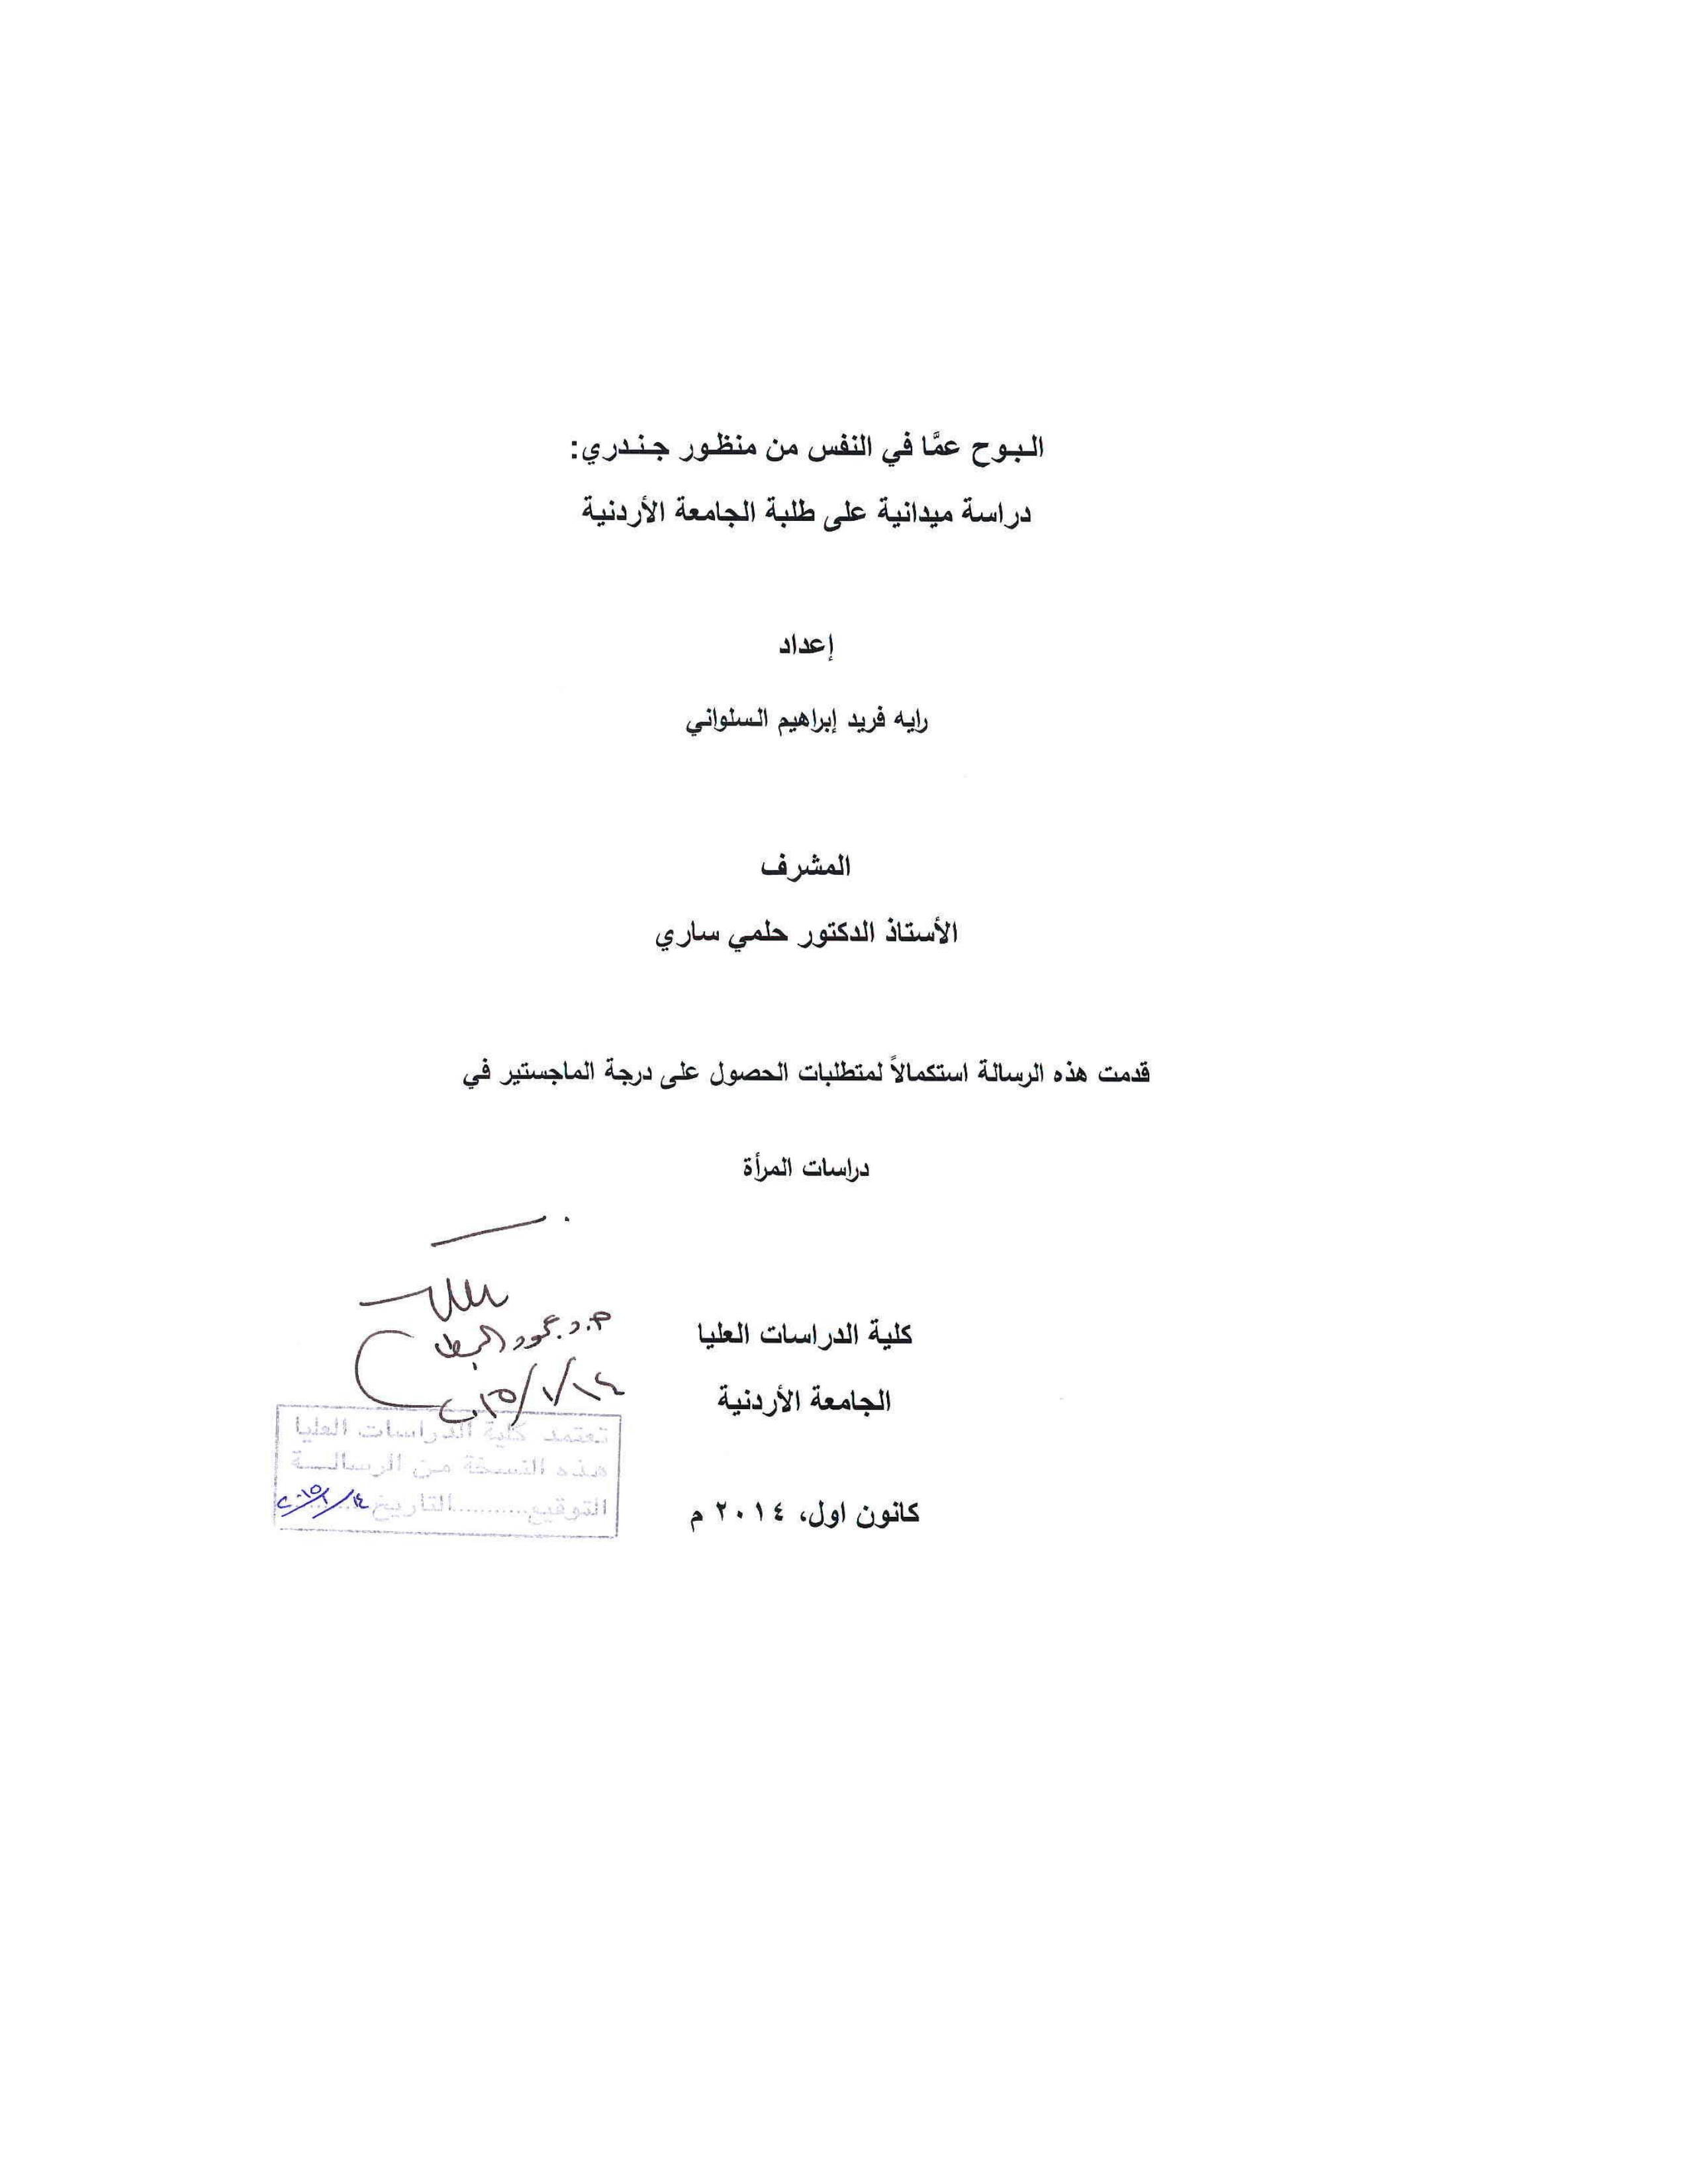 البوح عمَّا في النفس من منظور جندري:
دراسة ميدانية على طلبة الجامعة الأردنية
إعداد
رايه فريد إبراهيم السلواني
المشرف
الأستاذ الدكتور حلمي ساري
قدمت هذه الرسالة استكمالاً لمتطلبات الحصول على درجة الماجستير في
دراسات المرأة
كلية الدراسات العليا
الجامعة الأردنية
١٤/١/٢٠١٥
تعتمد كلية الدراسات العليا
هذه النسخة من الرسالـــة
التوقيع..........التاريخ ١٤/١/٢٠١٥
كانون اول، ٢٠١٤ م